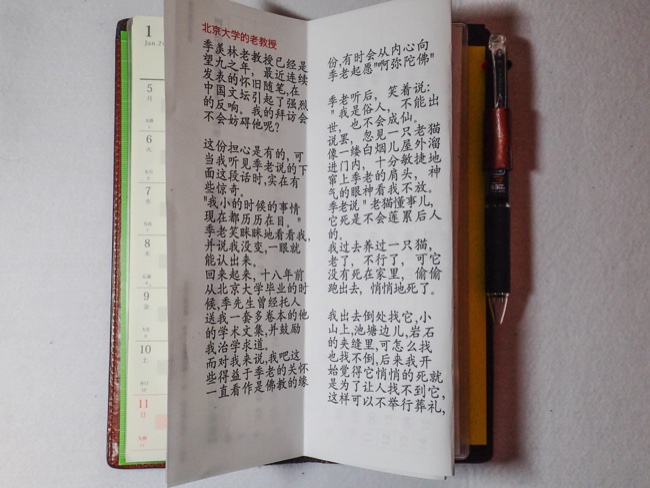 1
Jan.
5
月
6
火
7
水
8
木
9
金
10
土
11
日
北京大学的老教授
季羡林老教授已经是
望九之年，最近连续
发表的怀旧随笔,在
中国文坛引起了强烈
的反响。我的拜访会
不会妨碍他呢?
这份担心是有的，可
当我听见季老说的下
面这段话时,实在有
些惊奇。
"我小的时候的事情
现在都历历在目。"
季老笑眯眯地看着我,
并说我没变,一眼就
能认出来。
回来起来，十八年前
从北京大学毕业的时
候,季先生曾经托人
送我一套多卷本的他
的学术文集,并鼓励
我治学求道。
而对我来说,我吧这
些得益于季老的关怀
一直看作是佛教的缘
份,有时会从内心向
季老起愿"啊弥陀佛"
季老听后，笑着说:
"我是俗人，不能出
世，也不会成仙。
说罢，忽见一只老猫
像一缕白烟儿屋外溜
进门内，十分敏捷地
窜上季老的肩头，神
气的眼神看我不放。
季老说"老猫懂事儿,
它死是不会莲累后人
的。
我过去养过一只猫,
老了，不行了，可它
没有死在家里，偷偷
跑出去，悄悄地死了。
我出去倒处找它,小
山上,池塘边儿,岩石
的夹缝里,可怎么找
也找不倒,后来我开
始觉得它悄悄的死就
是为了让人找不到它,
这样可以不举行葬礼,